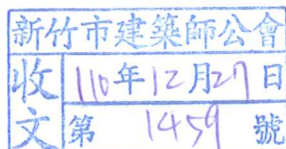 新竹市建築師公會
收文
110年12月27日
第1459號